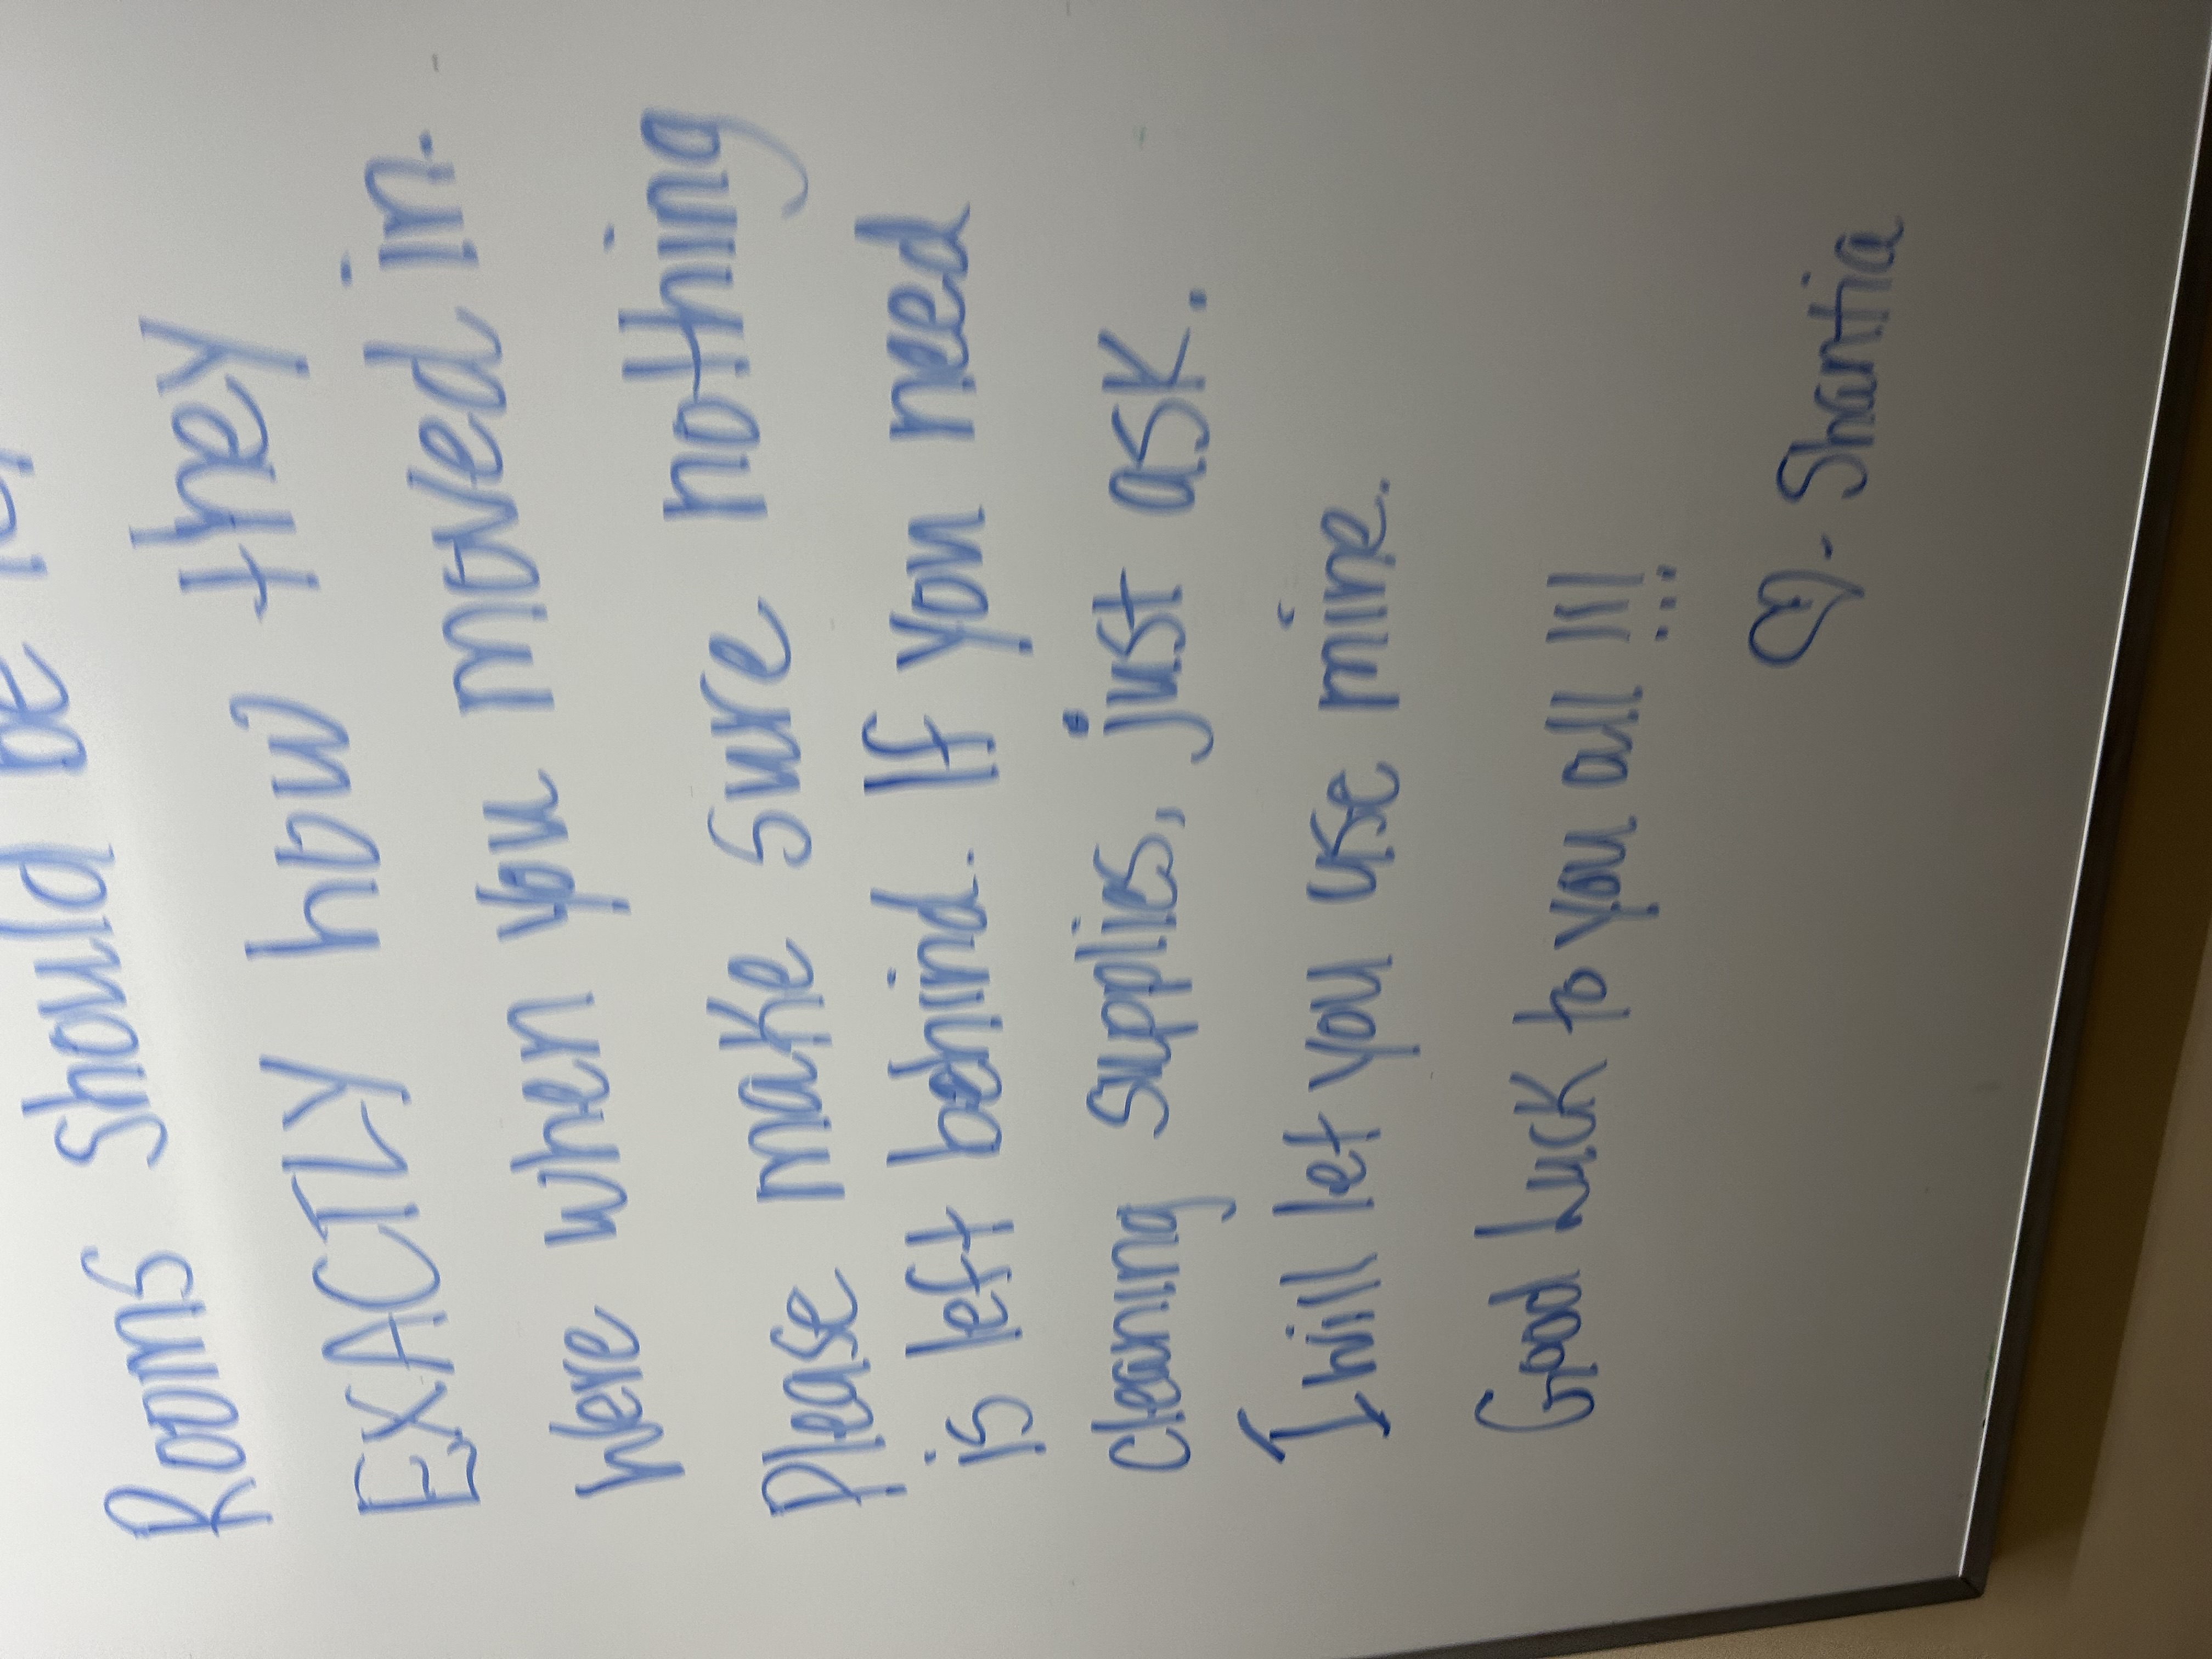 Rooms should be
EXACTLY how they
were when you moved in.
Please make sure nothing
is left behind. If you need
cleaning supplies, just ask.
I will let you use mine.
Good Luck to you all !!!
♡- Shantia